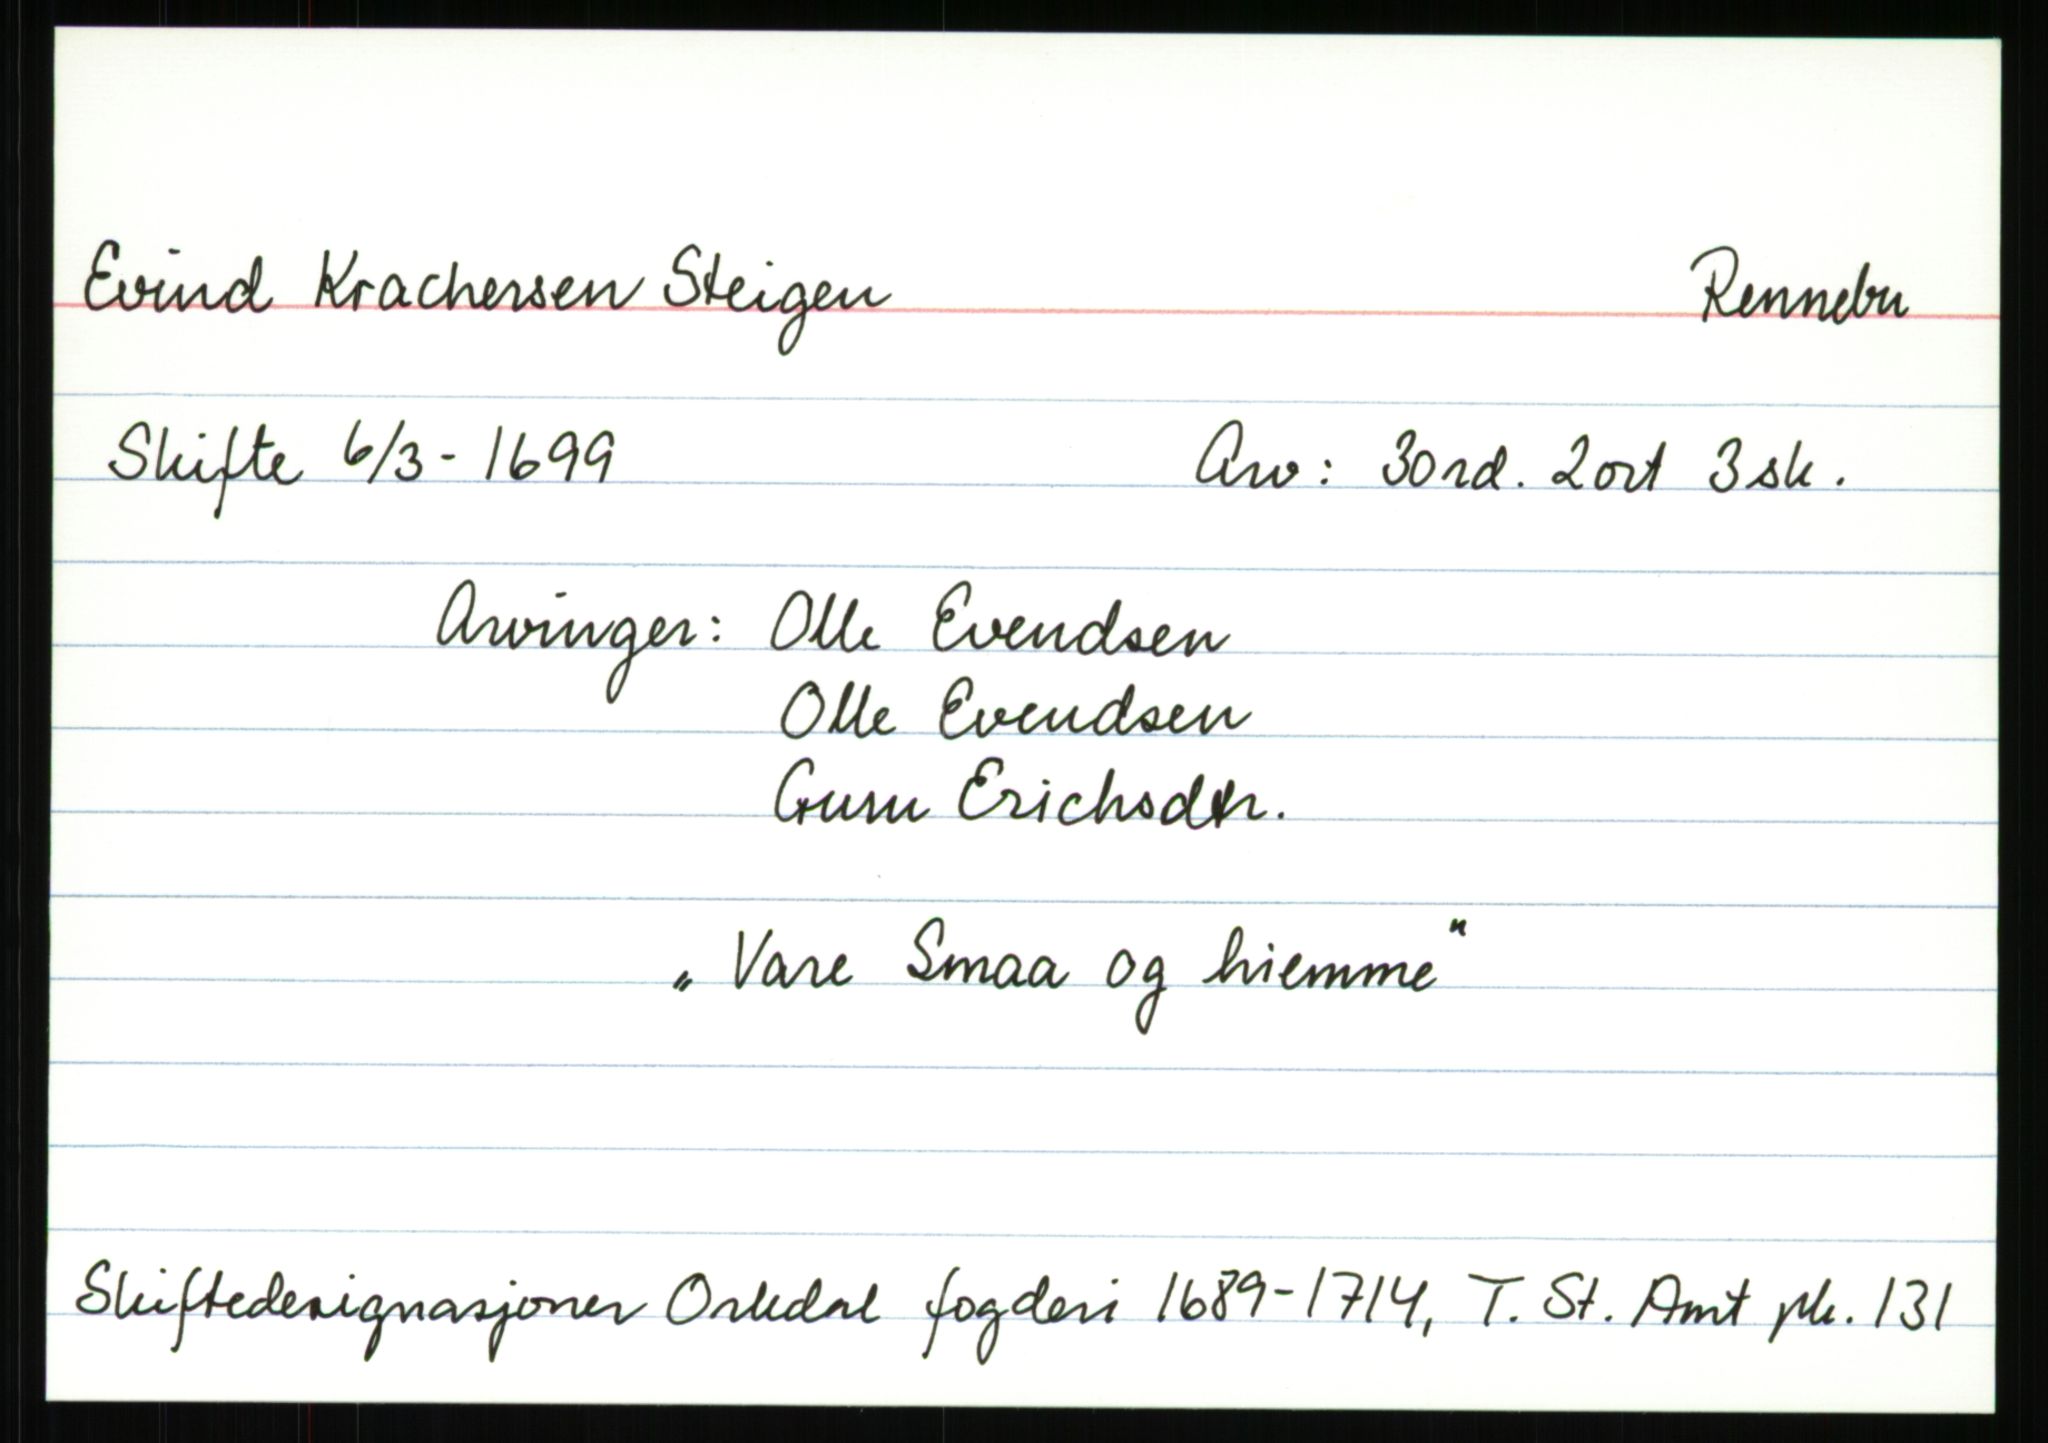 Evind Krachersen Steigen Rennebu
Skifte 6/3 - 1699 Arv: 30 rd. 2 ort 3 sk.
Arvinger: Olle Evendsen
Olle Evendsen
Guru Erichsdtr.
„Vare Smaa og hiemme"
Skiftedesignasjoner Orkdal fogderi 1689-1714, T. St. Amt pk. 131